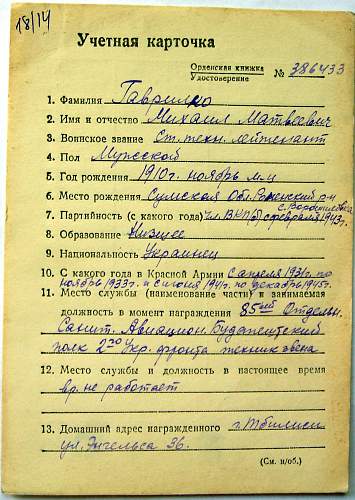 18/14
Учетная карточка
Орденская книжка
Удостоверение № 386433
1. Фамилия Гаврилко
2. Имя и отчество Михаил Матвеевич
3. Воинское звание Ст. техн. лейтенант
4. Пол Мужской
5. Год рождения 1910 г. ноябрь м-ц
6. Место рождения Сумская Обл. Роменский р-н
7. Партийность (с какого года) Чл. ВКП(б) с февраля 1943 г.
8. Образование Низшее
9. Национальность Украинец
10. С какого года в Красной Армии С апреля 1931 г. по
ноябрь 1933 г. и с июня 1941 г. по декабрь 1945 г.
11. Место службы (наименование части) и занимаемая
должность в момент награждения 85ый Отдельн.
Санит. Авиацион. Будапештский
полк 2го Укр. фронта техник звена
12. Место службы и должность в настоящее время
вр. не работает
13. Домашний адрес награжденного г. Тбилиси
ул. Энгельса 36.
(См. н/об.)